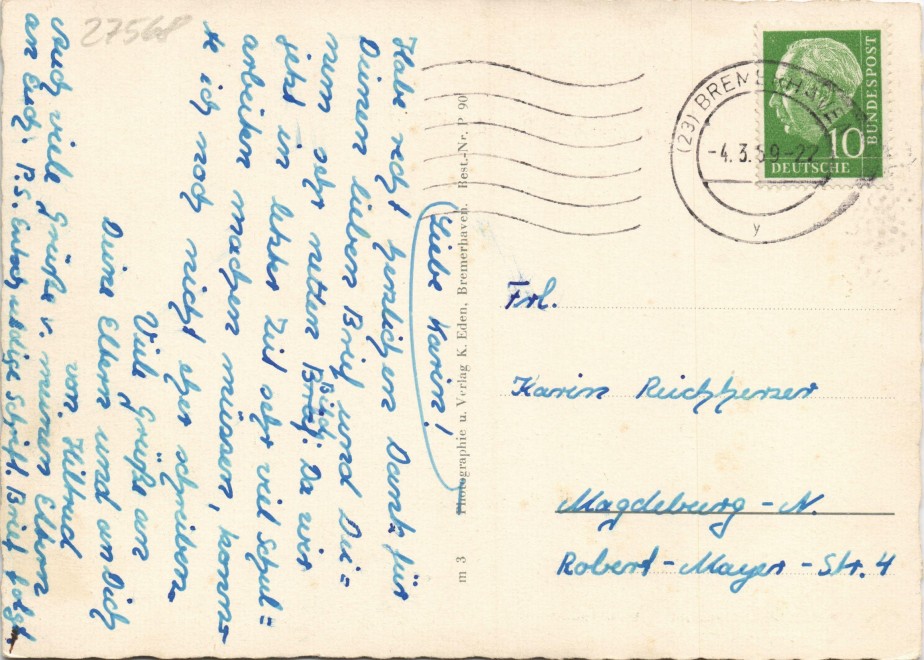 27568
Liebe Karin!
Habe recht herzlichen Dank für
Deinen lieben Brief und Dei=
nem sehr netten Buch. Da wir
jetzt in letzter Zeit sehr viel Schul=
arbeiten machen müssen, konn=
te ich noch nicht eher schreiben.
Viele Grüße an
Deine Eltern und an Dich
von Hiltrud
Auch viele Grüße v. meinen Eltern
an Euch. P.S. Entschuldige Schrift. Brief folgt.
m 3 Photographie u. Verlag K. Eden, Bremerhaven. Best.-Nr. P 90
(23) BREMERHAVEN
-4.3.59-22
y
10
DEUTSCHE
BUNDESPOST
Frl.
Karin Reichherzer
Magdeburg - N.
Robert - Mayer - Str. 4